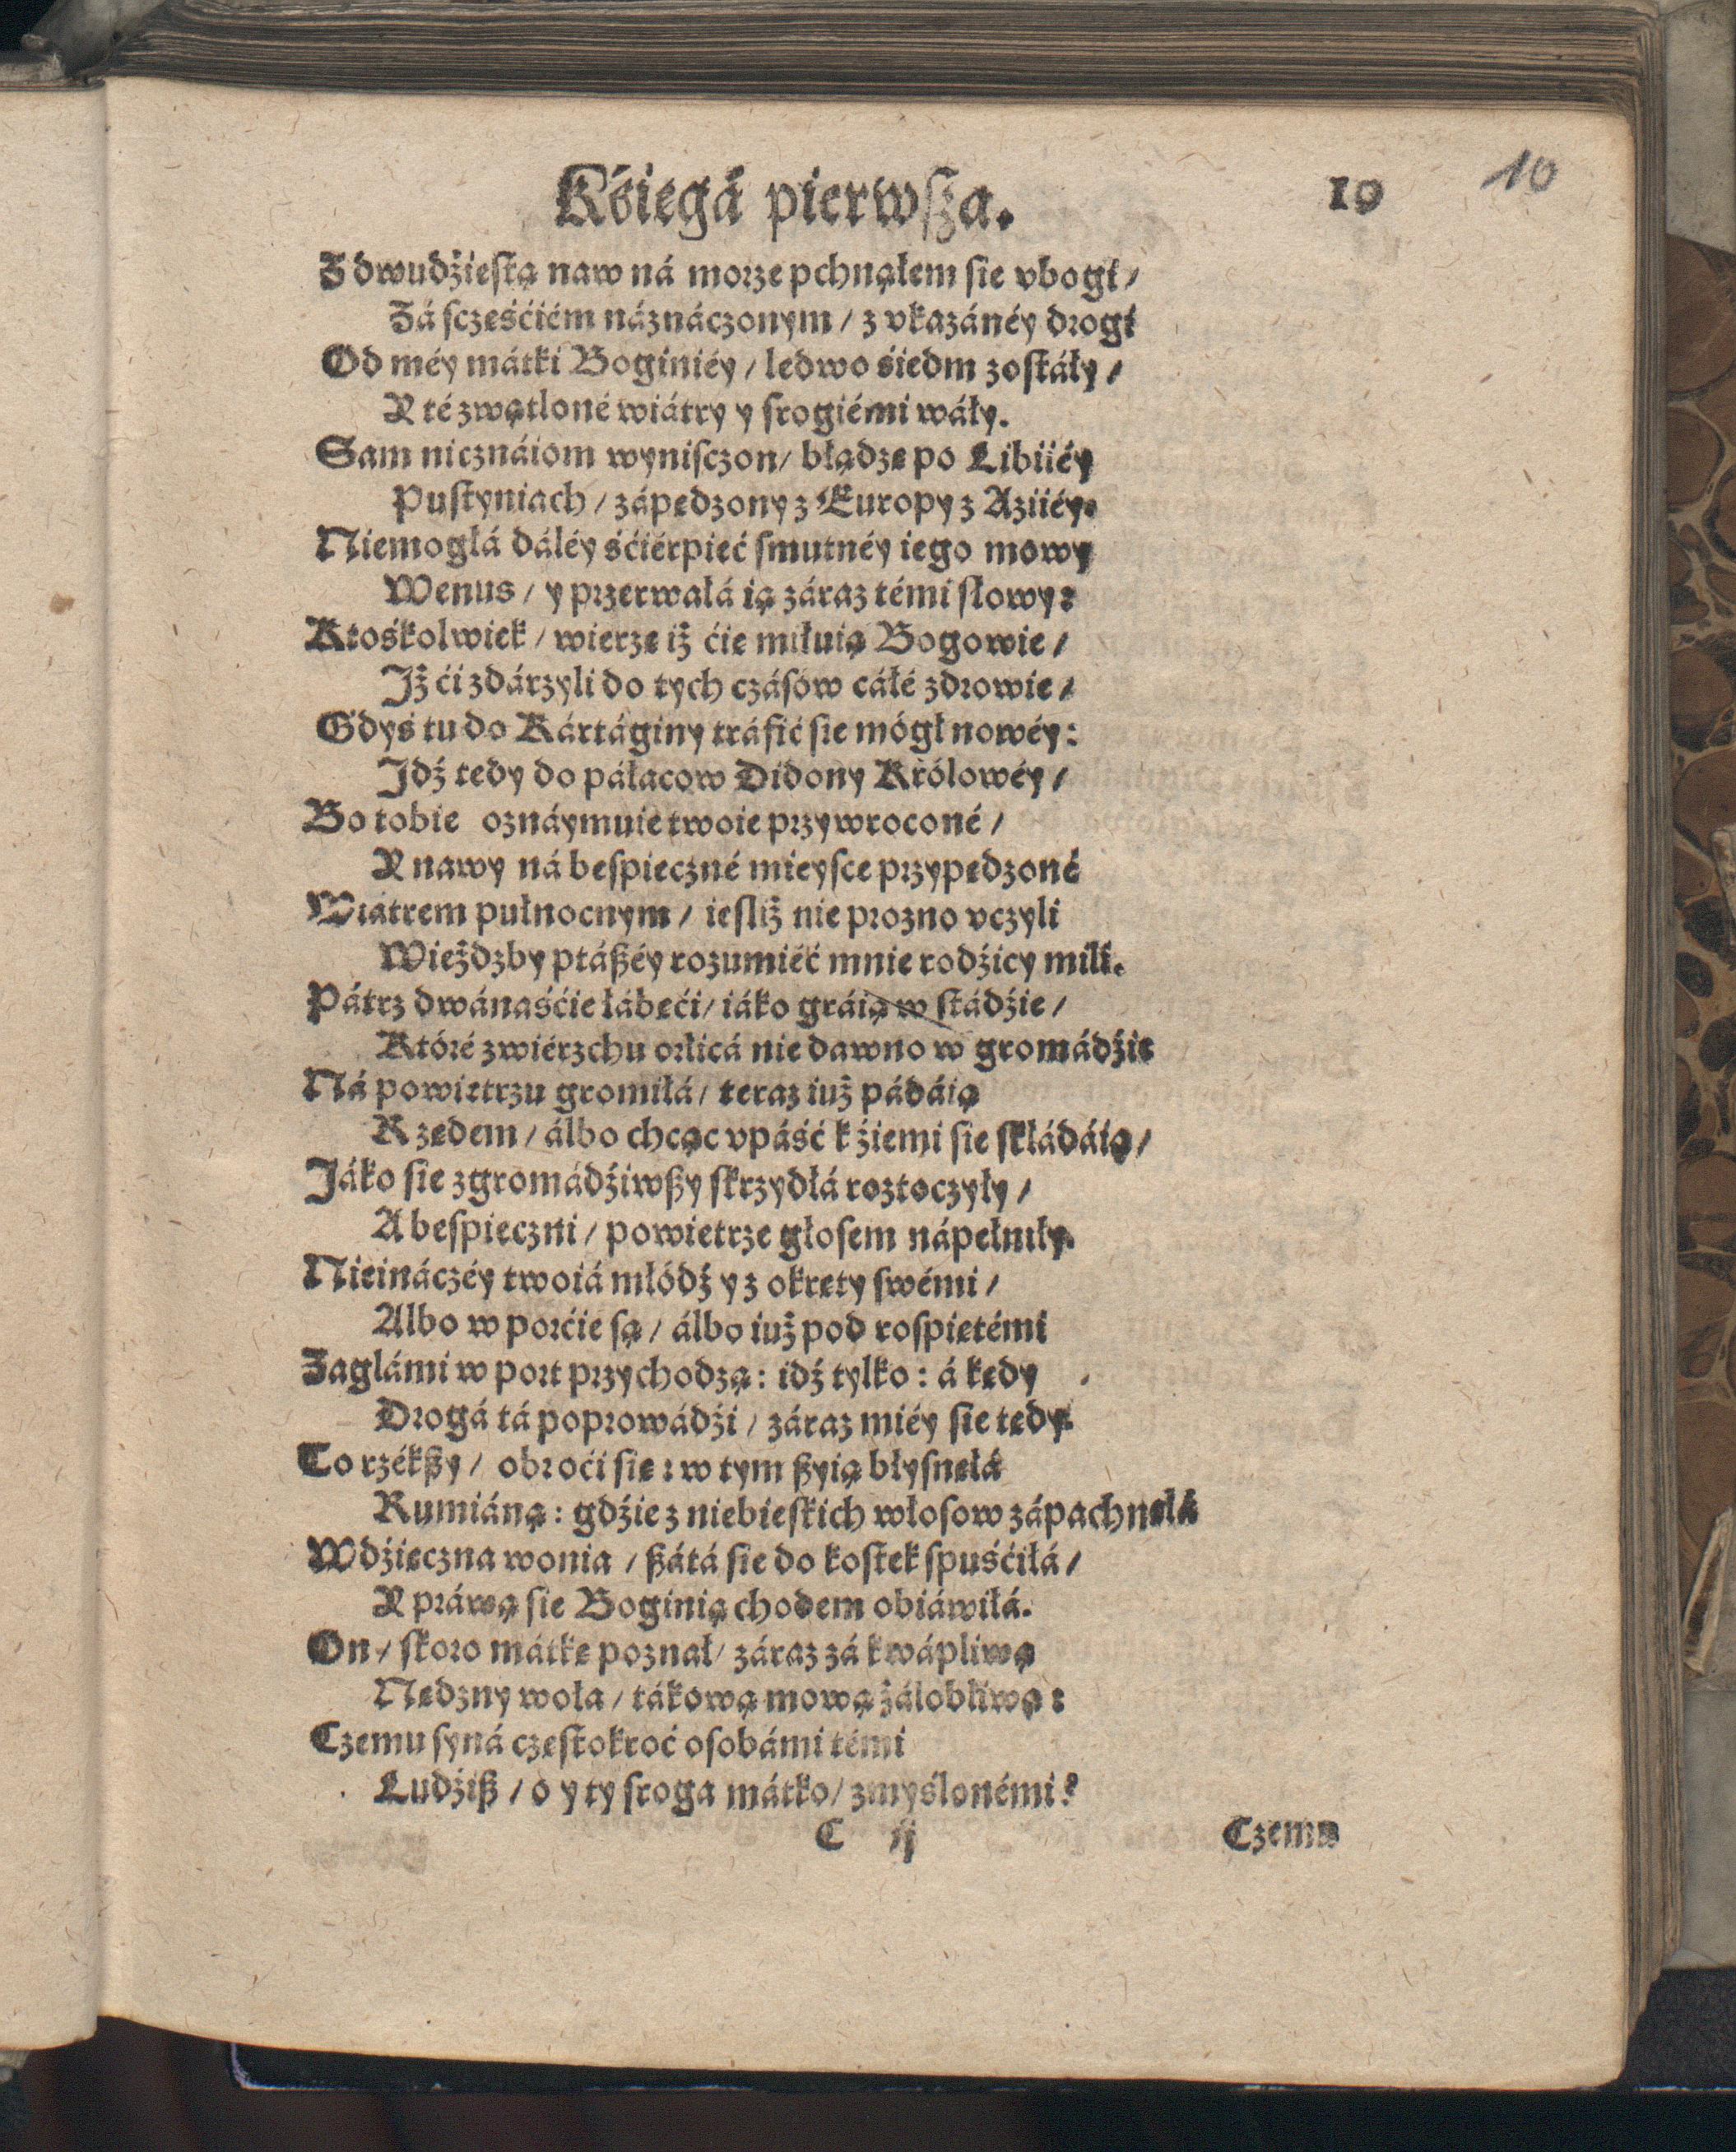 Kśięgá pierwſza. 10 10
Z dwudźieſtą naw ná morze pchnąłem ſie vbogi /
Zá ſczęśćiém náznáczonym / z vkazánéy drogi
Od méy mátki Boginiéy / ledwo śiedm zoſtáły /
Y té zwątloné wiátry y ſrogiémi wáły.
Sam nicznáiom wyniſczon / błądzę po Libiiéy
Puſtyniach / zápędzony z Europy z Aziiéy.
Niemogłá dáléy śćiérpieć ſmutnéy iego mowy
Wenus / y przerwałá ią záraz témi ſłowy:
Ktośkolwiek / wierzę iż ćię miłuią Bogowie /
Iż ći zdárzyli do tych czáſów cáłé zdrowie /
Gdyś tu do Kártáginy tráfić ſie mógł nowéy:
Idź tedy do páłacow Didony Królowéy /
Bo tobie oznáymuię twoie przywroconé /
Y nawy ná beſpieczné mieyſce przypędzoné
Wiátrem pułnocnym / ieſliż nie prozno vczyli
Wieżdzby ptáßéy rozumiéć mnie rodźicy mili.
Pátrz dwánaśćie łábęći / iáko gráią w ſtádźie /
Któré zwiérzchu orlicá nie dawno w gromádźie
Ná powietrzu gromiłá / teraz iuż pádáią
Rzędem / álbo chcąc vpáść k źiemi ſie ſkłádáią /
Iáko ſie zgromádźiwßy ſkrzydłá roztoczyły /
A beſpieczni / powietrze głoſem nápełniły.
Nieináczéy twoiá młódź y z okręty ſwémi /
Albo w porćie ſą / álbo iuż pod roſpiętémi
Zaglámi w port przychodzą: idź tylko: á kędy
Drogá tá poprowádźi / záraz miéy ſie tędy.
To rzékßy / obroći ſię: w tym ßyią błyſnęłá
Rumiáną: gdźie z niebieſkich włoſow zápachnęłá
Wdźięczna wonia / ßátá ſie do koſtek ſpuśćiłá /
Y práwą ſie Boginią chodem obiáwiłá.
On / ſkoro mátkę poznał / záraz zá kwápliwą
Nędzny woła / tákową mową żáłobliwą:
Czemu ſyná częſtokroć oſobámi témi
Ludźiß / o y ty ſroga mátko / zmyślonémi?
C ij Czemu